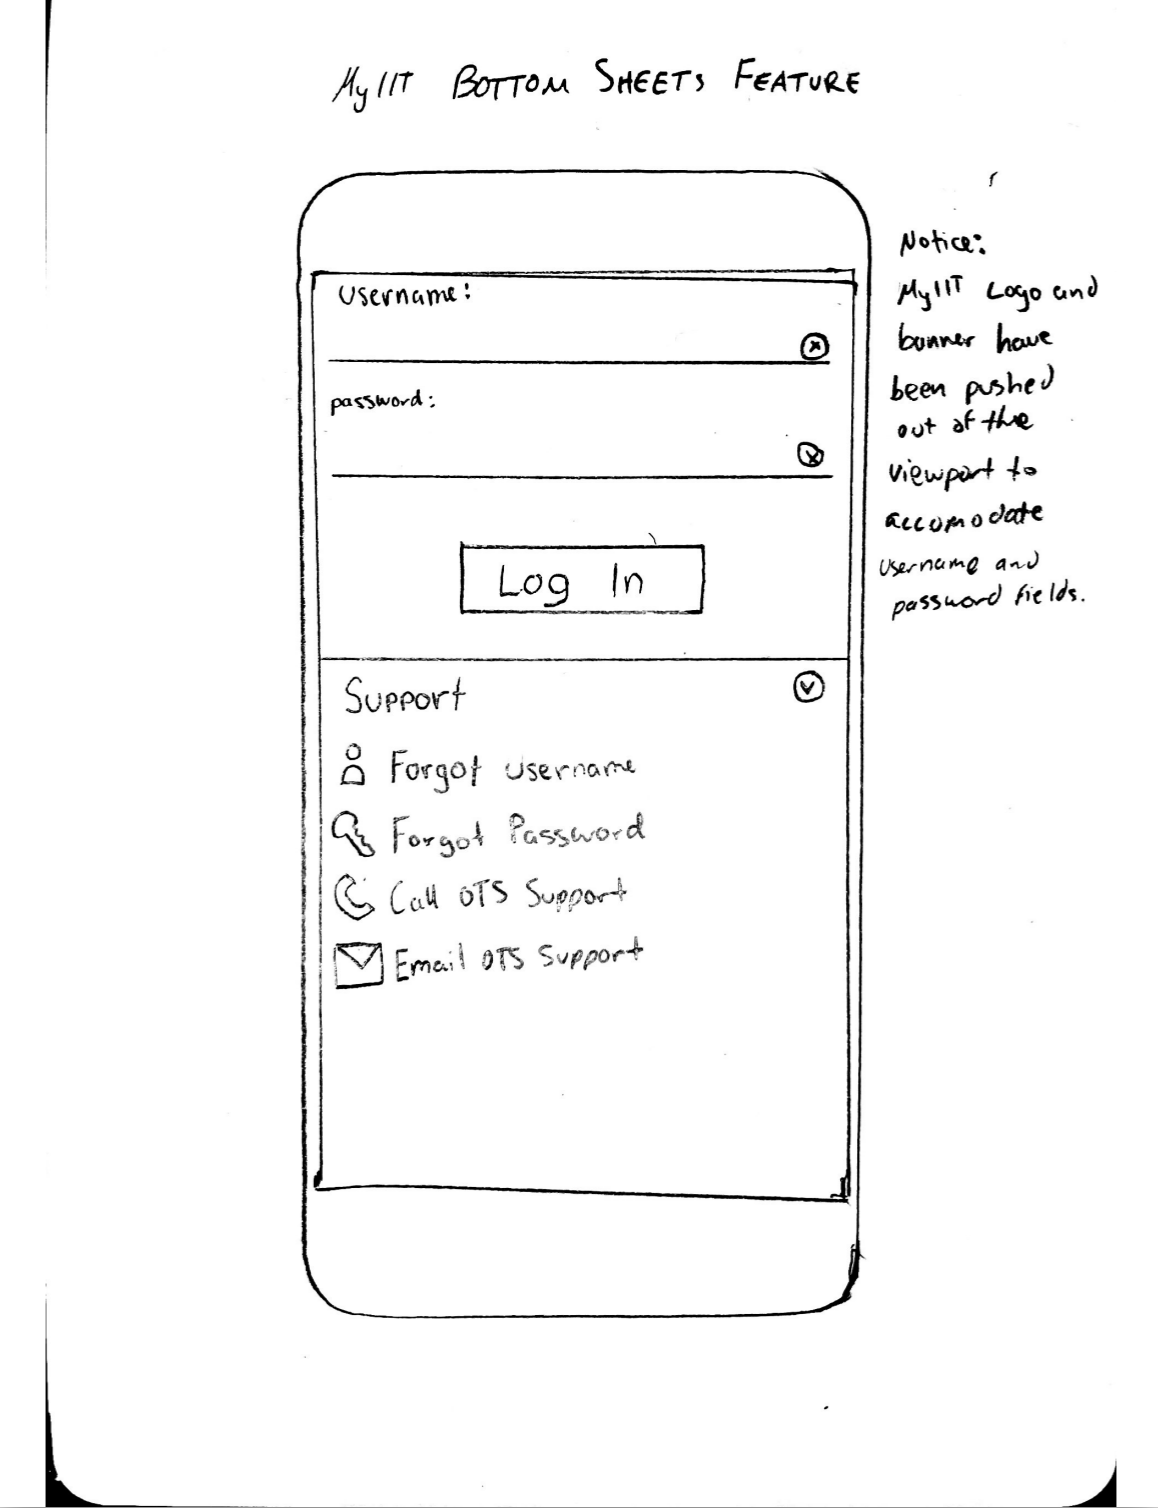 MyIIT BOTTOM SHEETS FEATURE
Username:
password:
Log In
Support
Forgot Username
Forgot Password
Call OTS Support
Email OTS Support
Notice:
MyIIT Logo and
banner have
been pushed
out of the
viewport to
accomodate
username and
password fields.